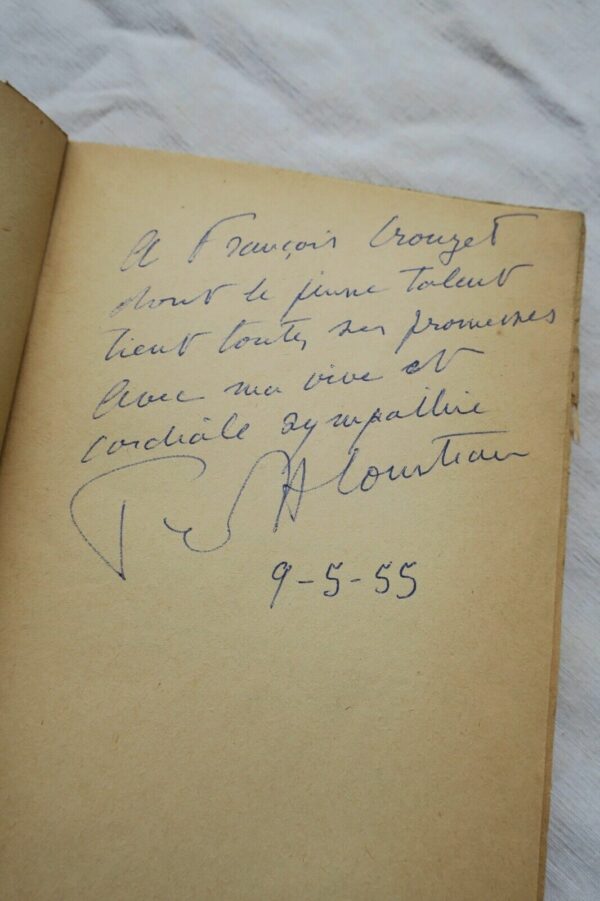 A François Crouzet
dont le jeune talent
tient toutes ses promesses
avec ma vive et
cordiale sympathie
9-5-55